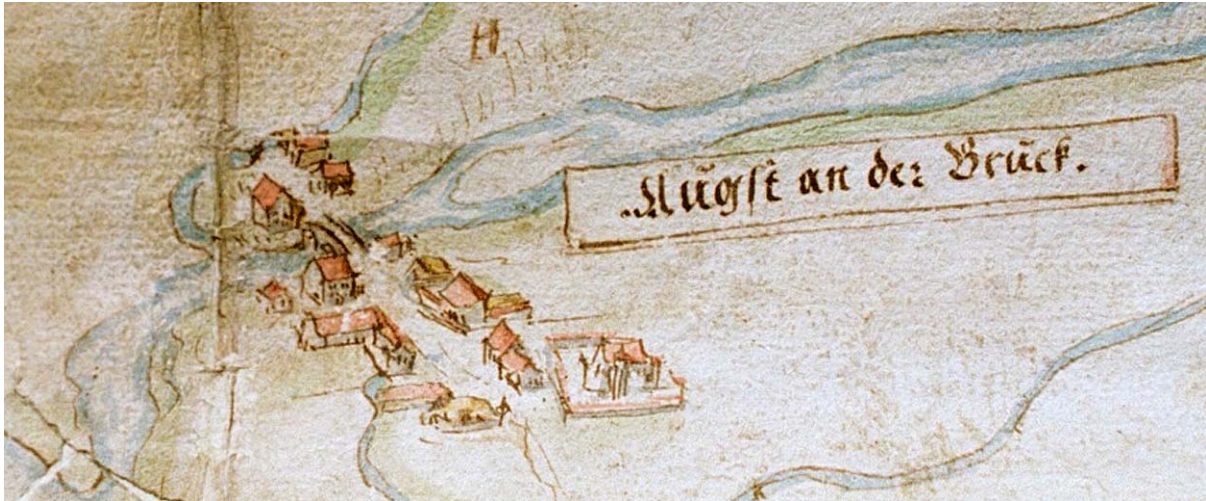 H
Augst an der Bruck.